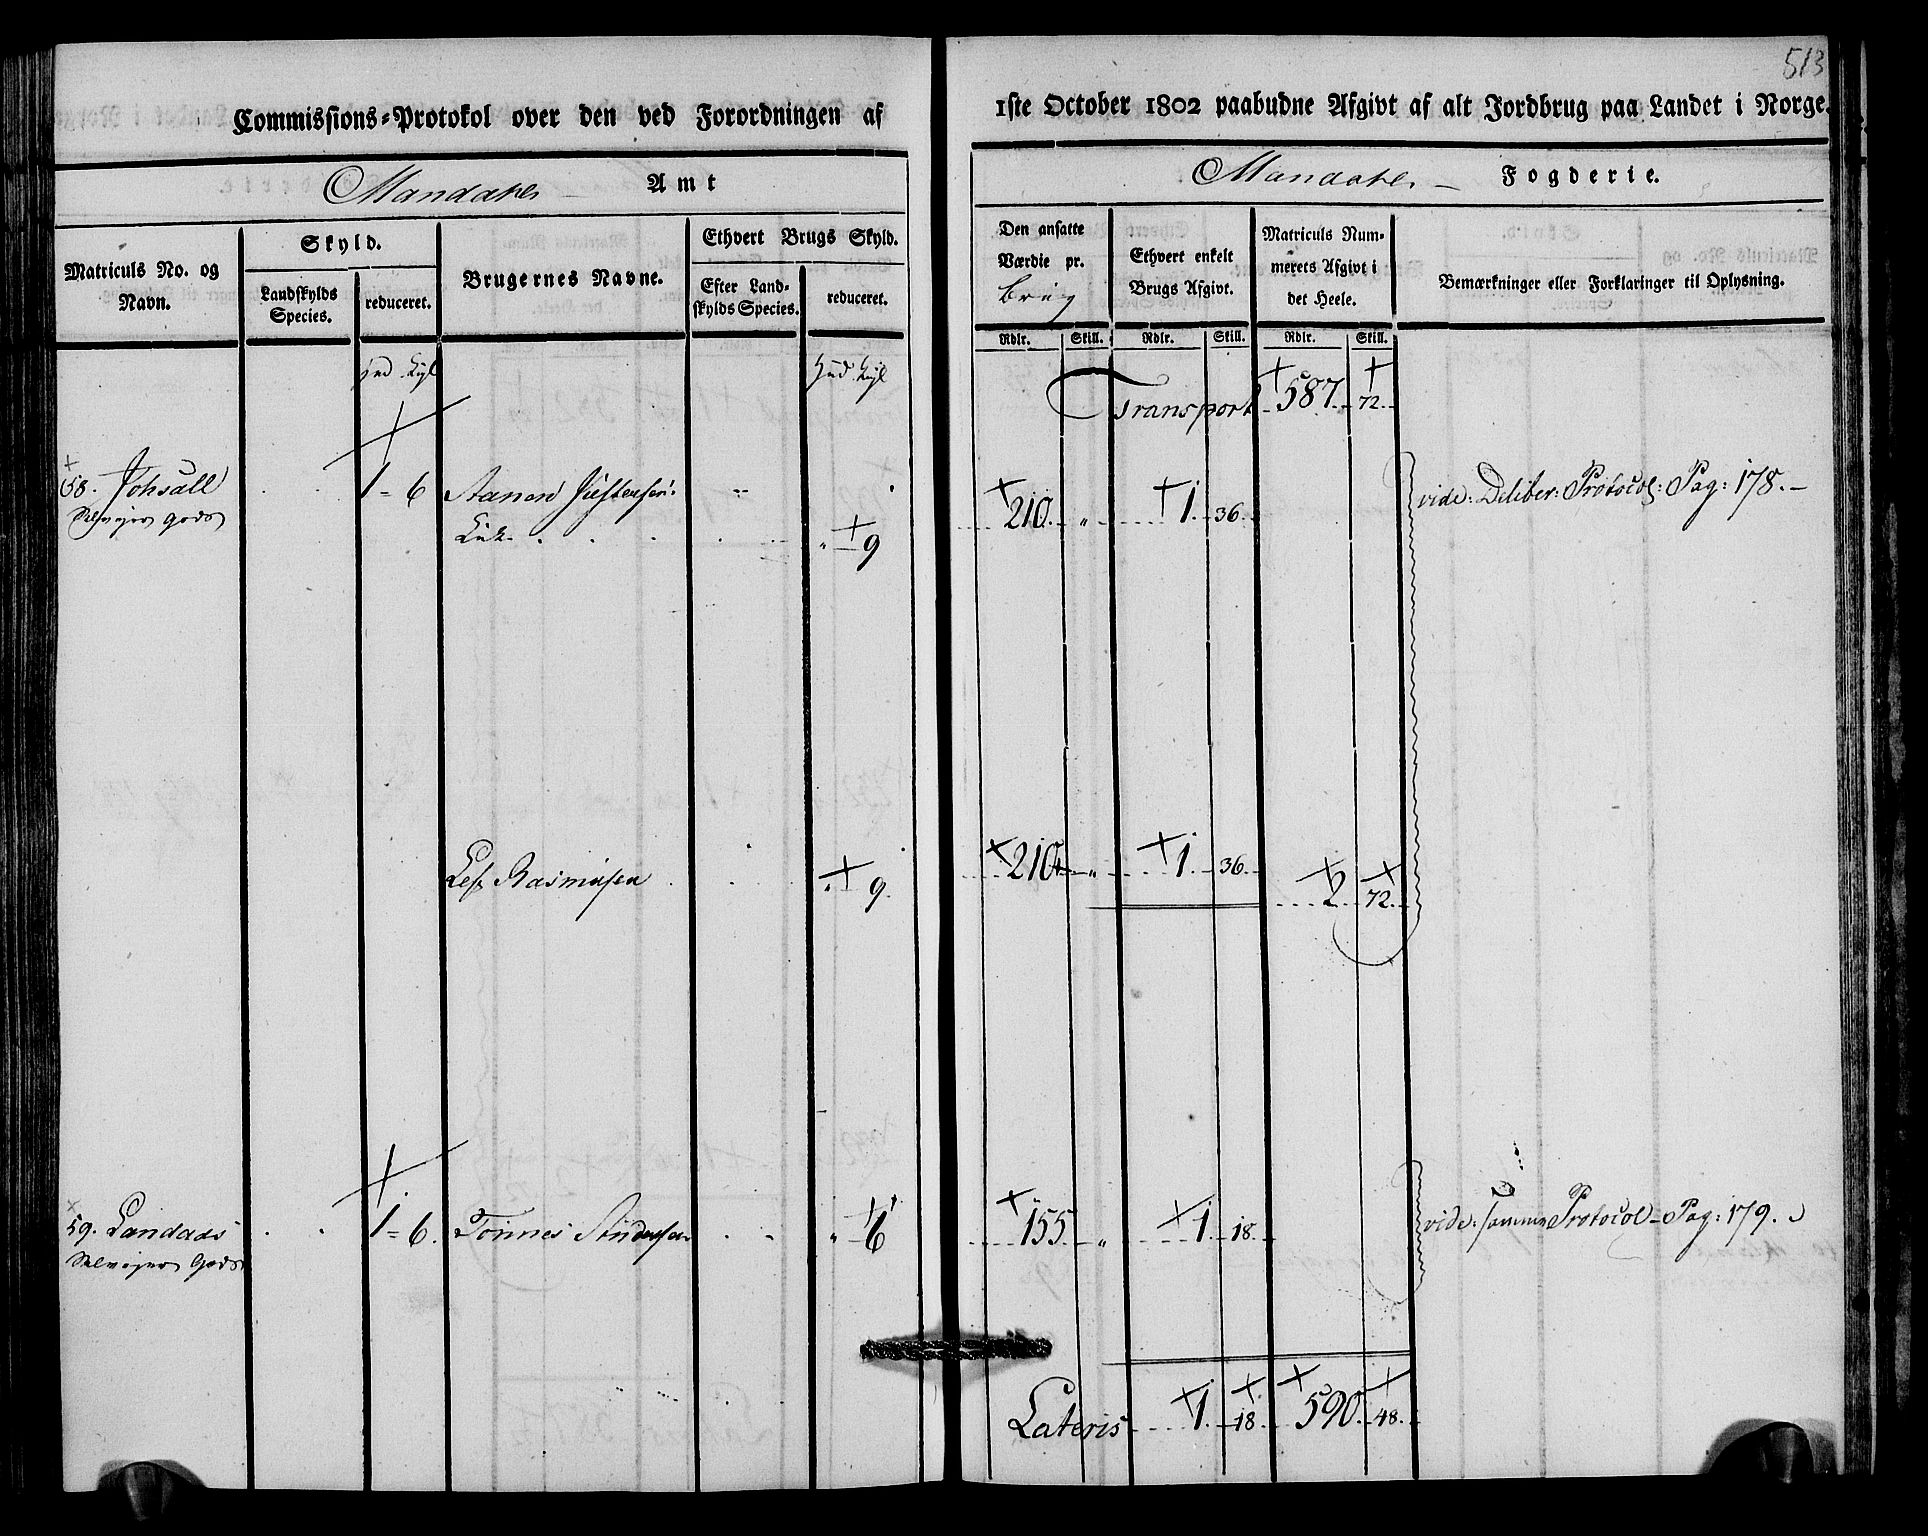 513
Commissions-Protokol over den ved Forordningen af 1ste October 1802 paabudne Afgivt af alt Jordbrug paa Landet i Norge.
Mandahls Amt
Mandahls Fogderie.
Matriculs No. og Navn.
Skyld.
Landskylds Species.
reduceret.
Brugernes Navne.
Ethvert Brugs Skyld.
Efter Landskylds Species.
reduceret.
Den ansatte Værdie pr. brug
Ethvert enkelt Brugs Afgivt.
Matriculs Nummerets Afgivt i det Heele.
Bemærkninger eller Forklaringer til Oplysning.
Rdlr. Skill. Rdlr. Skill. Rdlr. Skill.
Hud
Hud
Transport 587. 72.
58. 1 = 6 210. " 1. 36. vide: Deliber: Protocol: Pag: 178.
Selveyer gods " 9
Rasmusen " 9. 210 " 1. 36. 2. 72.
59. Landaas 1 = 6. Tönnes " 6 155 " 1. 18. vide: samme Protocol Pag: 179.
Selveyer Gods
Lateris 1. 18. 590. 48.